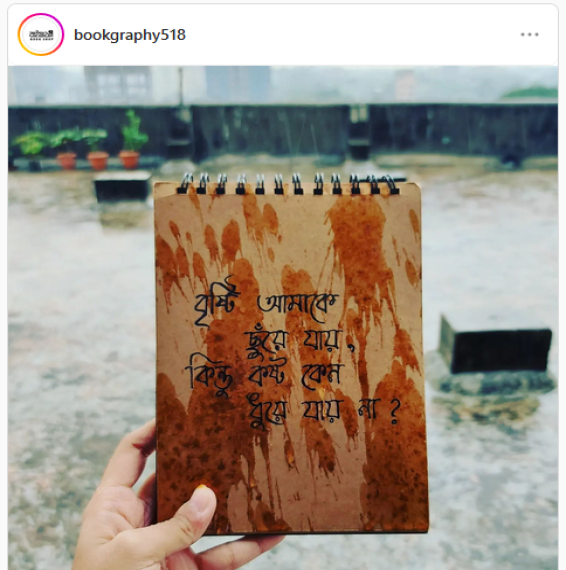 bookgraphy518
বৃষ্টি আমাকে
ছুঁয়ে যায়,
কিন্তু কষ্ট কেন
ধুয়ে যায় না ?